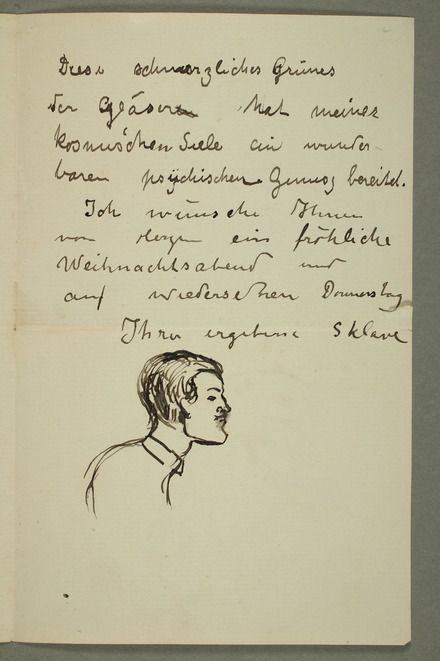 Diese schmerzliches Grünes
der Gläsern hat meiner
kosmischen Siele ein wunder-
baren psychischen Genusz bereitet.
Ich wünsche Ihnen
von Herzen ein fröhliche
Weihnachtsabend und
auf wiedersehen Donnerstag
Ihre ergebene Sklave